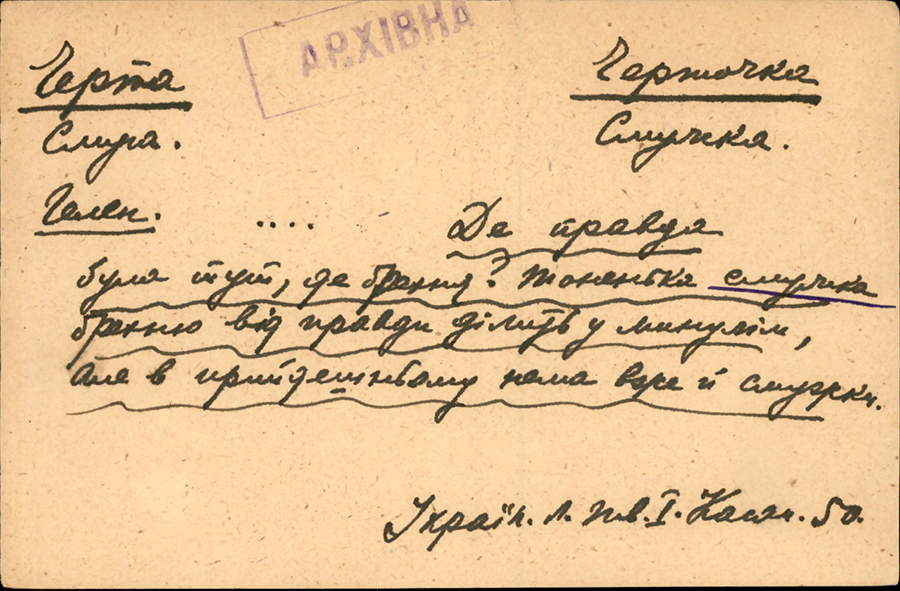 АРХІВНА
Черта Черточка
Смуга. Смужка.
Гелен. .... Де правда
була тут, де брехня? Тоненька смужка
брехню від правди ділить у минулім,
але в прийдешньому нема вже й смужки.
Україн. Л. тв. I. Касан. 50.